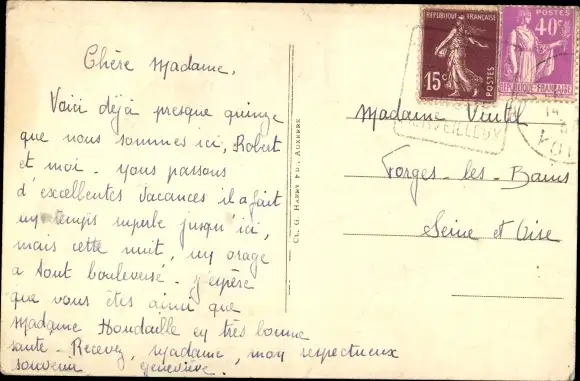 Chère Madame,
Voici déjà presque quinze
que nous sommes ici, Robert
et moi. nous passons
d'excellentes vacances il a fait
un temps superbe jusqu'ici,
mais cette nuit, un orage
a tout bouleversé. J'espère
que vous êtes ainsi que
Madame Houdaille en très bonne
santé. Recevez, Madame, mon respectueux
souvenir Geneviève.
CL. G. HAERY PH., AUXERRE
RÉPUBLIQUE FRANÇAISE
15c
POSTES
POSTES
40c
RÉPUBLIQUE FRANÇAISE
MERVEILLEUX
Madame
Forges-les-Bains
Seine et Oise